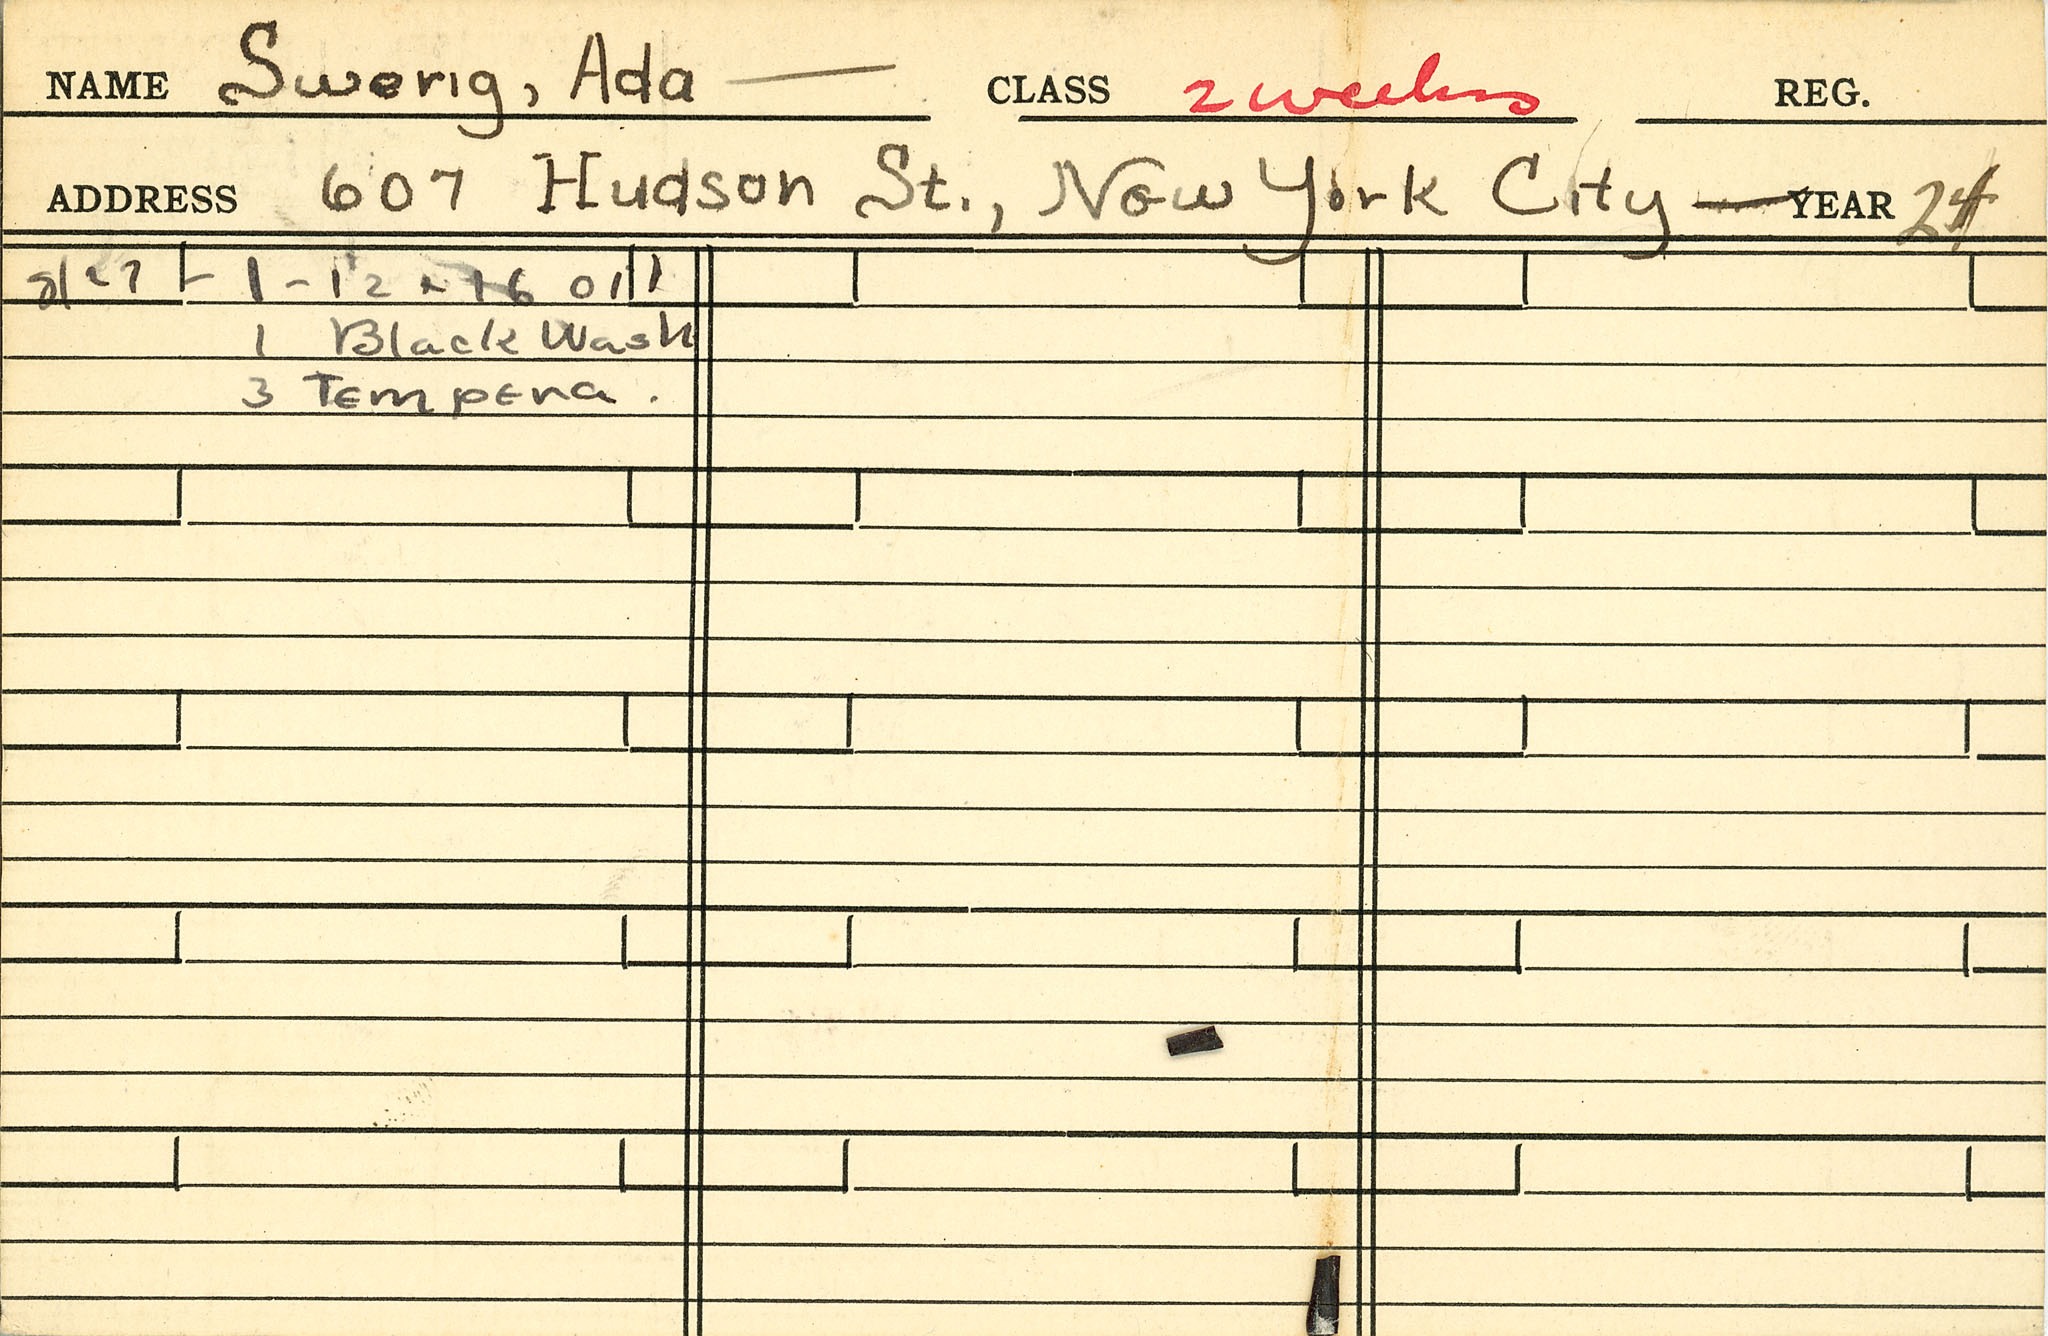 NAME Swerig, Ada — CLASS 2 weeks REG.
ADDRESS 607 Hudson St., New York City — YEAR 24
8/27 - 1 - 12 x 16 oil
1 Black Wash
3 Tempera.